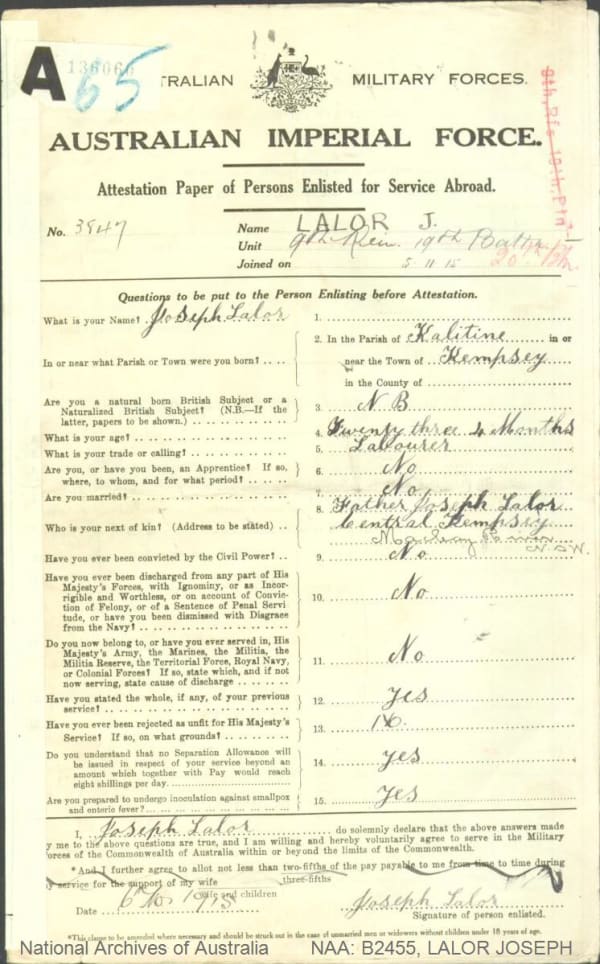 A
136066
65
AUSTRALIAN MILITARY FORCES.
AUSTRALIAN IMPERIAL FORCE.
Attestation Paper of Persons Enlisted for Service Abroad.
No. 3847
Name LALOR J.
Unit 9th Rein. 19th Battn
20th Bn.
Joined on 5 11 15
Questions to be put to the Person Enlisting before Attestation.
What is your Name? Joseph Lalor 1.
In or near what Parish or Town were you born? .. .. 2. In the Parish of Kalitine in or
near the Town of Kempsey
in the County of
Are you a natural born British Subject or a
Naturalized British Subject? (N.B.—If the
latter, papers to be shown.) 3. N B
What is your age? 4. Twenty three 4 Months
What is your trade or calling? 5. Labourer
Are you, or have you been, an Apprentice? If so,
where, to whom, and for what period? 6. No
Are you married? 7. No
Who is your next of kin? (Address to be stated) .. 8. Father Joseph Lalor
Central Kempsey
Macleay River
N.S.W.
Have you ever been convicted by the Civil Power? .. 9. No
Have you ever been discharged from any part of His
Majesty's Forces, with Ignominy, or as Incor-
rigible and Worthless, or on account of Convic-
tion of Felony, or of a Sentence of Penal Servi-
tude, or have you been Dismissed with Disgrace
from the Navy? 10. No
Do you now belong to, or have you ever served in, His
Majesty's Army, the Marines, the Militia, the
Militia Reserve, the Territorial Force, Royal Navy,
or Colonial Forces? If so, state which, and if not
now serving, state cause of discharge 11. No
Have you stated the whole, if any, of your previous
service? 12. Yes
Have you ever been rejected as unfit for His Majesty's
Service? If so, on what grounds? 13. No.
Do you understand that no Separation Allowance will
be issued in respect of your service beyond an
amount which together with Pay would reach
eight shillings per day 14. yes
Are you prepared to undergo inoculation against smallpox
and enteric fever? 15. Yes
I, Joseph Lalor do solemnly declare that the above answers made
by me to the above questions are true, and I am willing and hereby voluntarily agree to serve in the Military
Forces of the Commonwealth of Australia within or beyond the limits of the Commonwealth.
*And I further agree to allot not less than two-fifths of the pay payable to me from time to time during
three-fifths
my service for the support of my wife
wife and children
Date 1915 Joseph Lalor
Signature of person enlisted.
*This clause to be amended where necessary and should be struck out in the case of unmarried men or widowers without children under 18 years of age.
National Archives of Australia NAA: B2455, LALOR JOSEPH